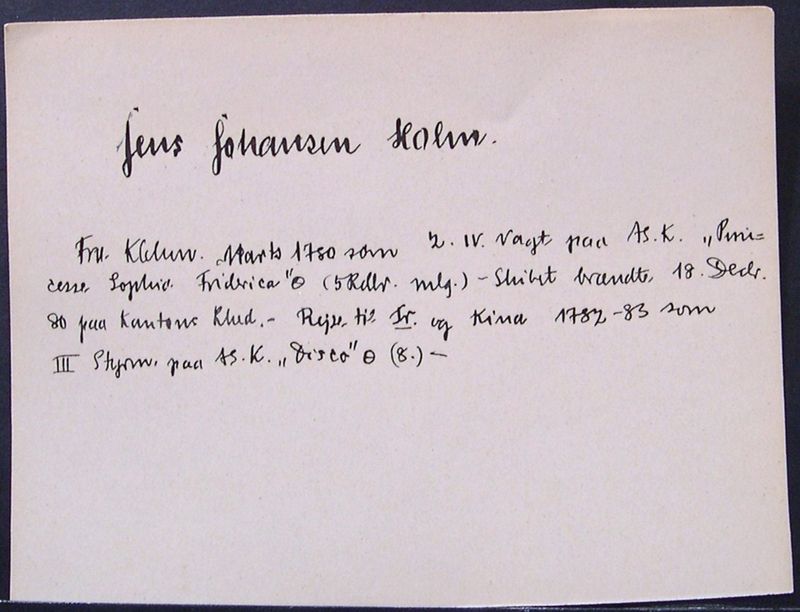 Jens Johansen Holm.
Fra Kbhvn. Marts 1780 som 2. IV. Vagt paa AS. K. „Prin=
cesse Sophia Friderica" ⊖ (5 Rdlr. mlg.) – Skibet brændte 18. Decbr.
80 paa Kantons Rhed. – Rejse til Tr. og Kina 1782–83 som
III Styrm. paa AS. K. „Disco" ⊖ (8.) –